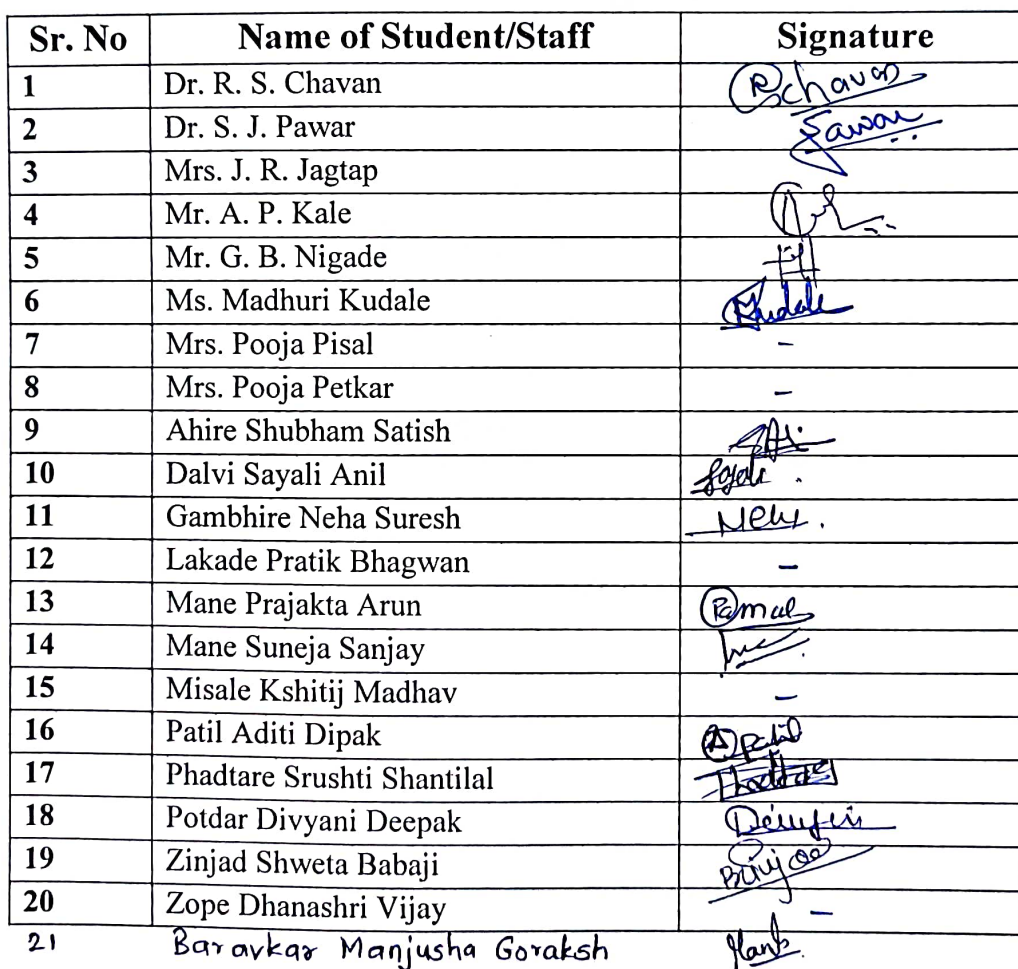 Sr. No Name of Student/Staff Signature
1 Dr. R. S. Chavan Rchavan
2 Dr. S. J. Pawar Pawar
3 Mrs. J. R. Jagtap
4 Mr. A. P. Kale
5 Mr. G. B. Nigade
6 Ms. Madhuri Kudale Kudale
7 Mrs. Pooja Pisal -
8 Mrs. Pooja Petkar -
9 Ahire Shubham Satish
10 Dalvi Sayali Anil
11 Gambhire Neha Suresh
12 Lakade Pratik Bhagwan -
13 Mane Prajakta Arun
14 Mane Suneja Sanjay
15 Misale Kshitij Madhav -
16 Patil Aditi Dipak Apatil
17 Phadtare Srushti Shantilal
18 Potdar Divyani Deepak
19 Zinjad Shweta Babaji
20 Zope Dhanashri Vijay -
21 Baravkar Manjusha Goraksh